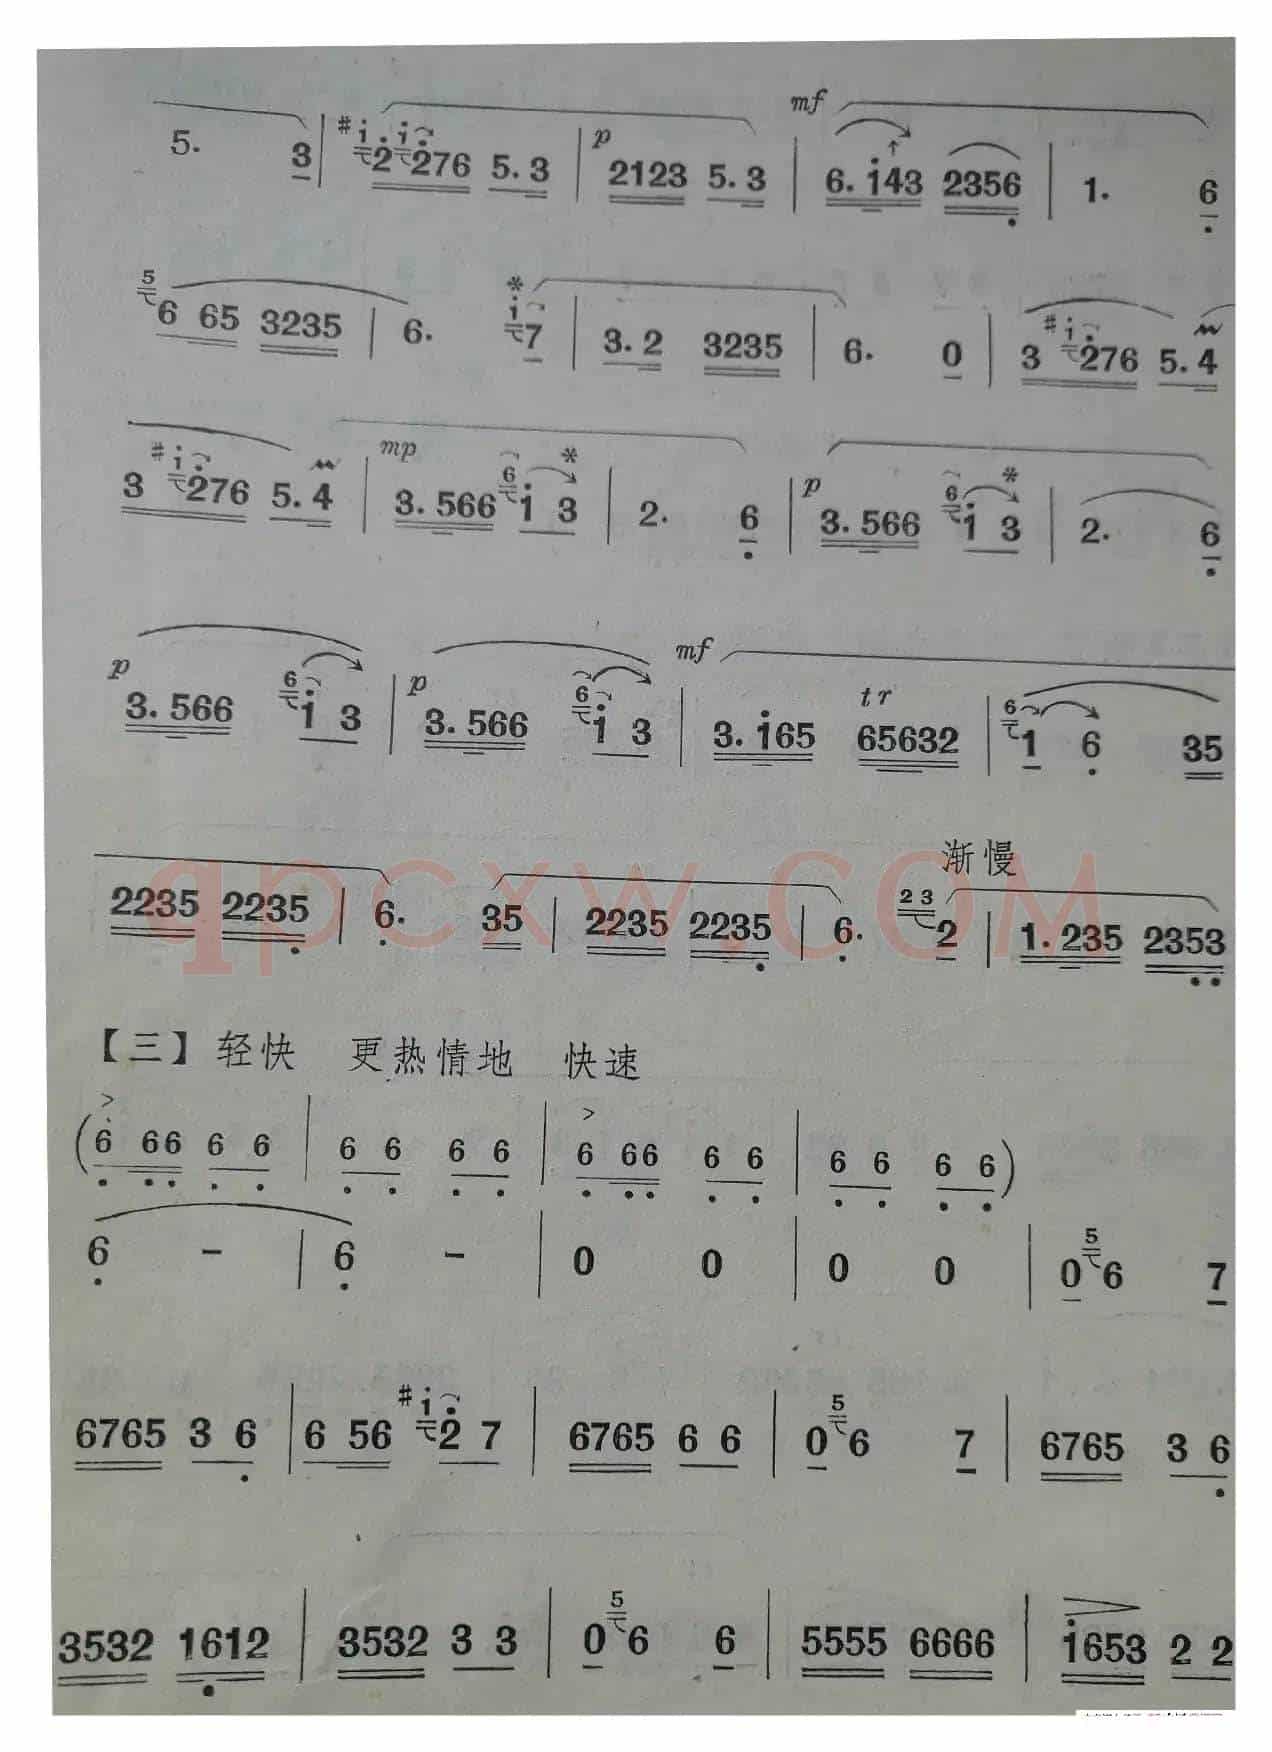 5. 3 | #i 2 i 276 5.3 | p 2123 5.3 | mf 6.i43 2356 | 1. 6
5 6 65 3235 | 6. * i 7 | 3.2 3235 | 6. 0 | 3 #i 276 5.4
3 #i 276 5.4 | mp 3.566 6 i 3 * | 2. 6 | p 3.566 6 i 3 * | 2. 6
p 3.566 6 i 3 | p 3.566 6 i 3 | mf 3.i65 tr 65632 | 6 1 6 35
渐慢
2235 2235 | 6. 35 | 2235 2235 | 6. 23 2 | 1.235 2353
qpcxw.com
【三】轻快 更热情地 快速
(6 66 6 6 | 6 6 6 6 | 6 66 6 6 | 6 6 6 6)
6 - | 6 - | 0 0 | 0 0 | 0 5 6 7
6765 3 6 | 6 56 #i 2 7 | 6765 6 6 | 0 5 6 7 | 6765 3 6
3532 1612 | 3532 3 3 | 0 5 6 6 | 5555 6666 | i653 2 2